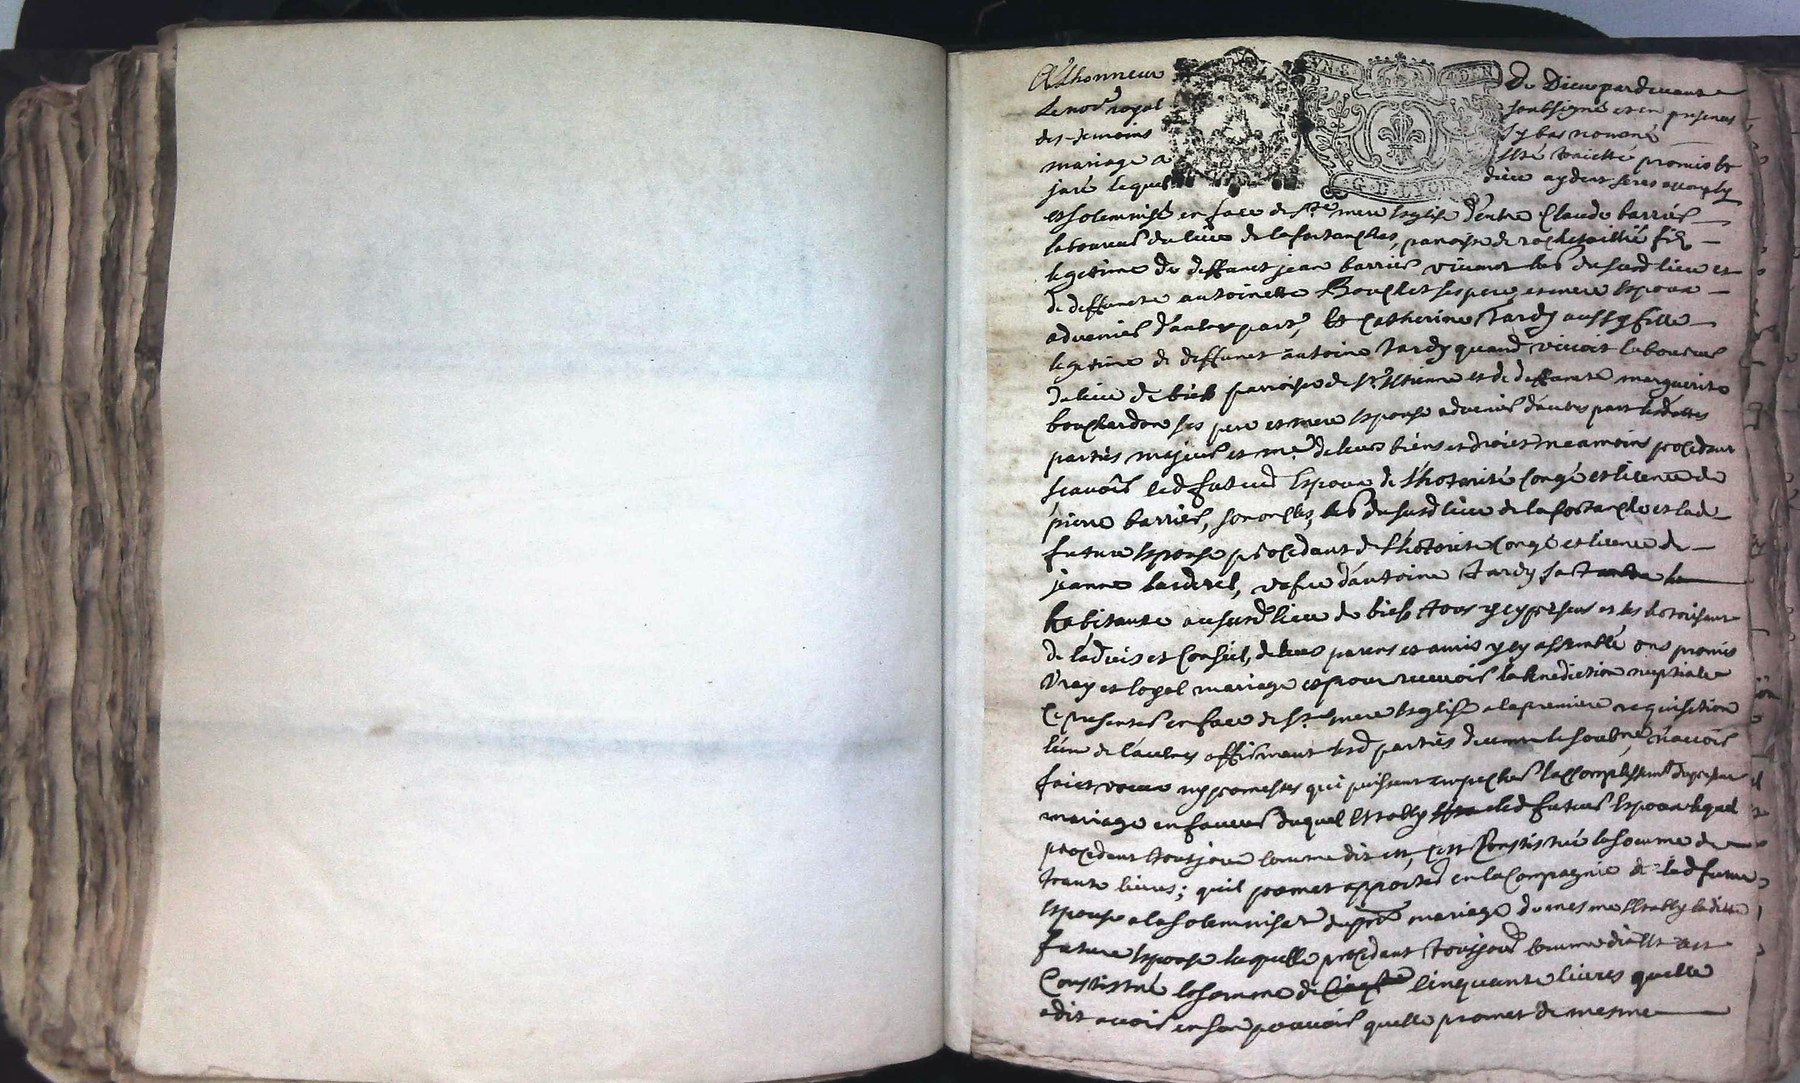 A l'honneur de Dieu pardevant
le nore royal soubsigné et en presence
des temoins sy bas nommé
mariage a esté traicté promis et
juré lequel dieu aydant seres accomply
et solemnisé en face de Ste mere Esglise d'entre Claude barrier
laboureur du lieu de la fortanches, paroisse de rochetaillié fils
legitime de deffunct jean barrier vivant lab dususd lieu et
de deffuncte antoinette Bouchet ses pere et mere Espoux
advenir d'autre part, Et Catherine Tardy aussy fille
legitime de deffunct antoine Tardy quand vivoit laboureur
du lieu de paroisse de St Estienne et de deffuncte marguerite
bouchardon ses pere et mere Espouse advenir d'autre part lesdattes
parties majeurs et mes de leurs biens et droicts neamoins procedant
scavoir led futeur Espoux de l'hotorité congé et licence de
pierre barrier, son oncles, lab dususd lieu de la fortanche et lade
future Espouse procedant de l'hotorité congé et licence de
jeanne vefve d'antoine tardy sa
habitante aususd lieu de tous ycy presens et les hotorisant
de l'advis et Conseil, de leurs parens et amis ycy assemblé ons promis
Vray et loyal mariage et pour recevoir la benediction nuptiale
ce presenter en face de Ste mere Esglise a la premiere requisition
l'un de l'autres affirmant lesd parties n'avoir
faict voeux ny promesses qui puissent empecher l'accomplissemt du present
mariage en faveur duquel Estably led futeur Espoux lequel
procedant tousjour comme dit est, c'est Constistué la somme de
trante livres; quil promet apporter en la Compagnie de lad future
Espouse a la solemnisaon du pnt mariage de mesme Estably ladite
future Espouse laquelle procedant tousjour comme dict Est c'est
Constistué la somme de cinquante livres quelle
a dit avoir en son pouvoir quelle promet de mesme
YN.S 4.DEN
G.D.LYON